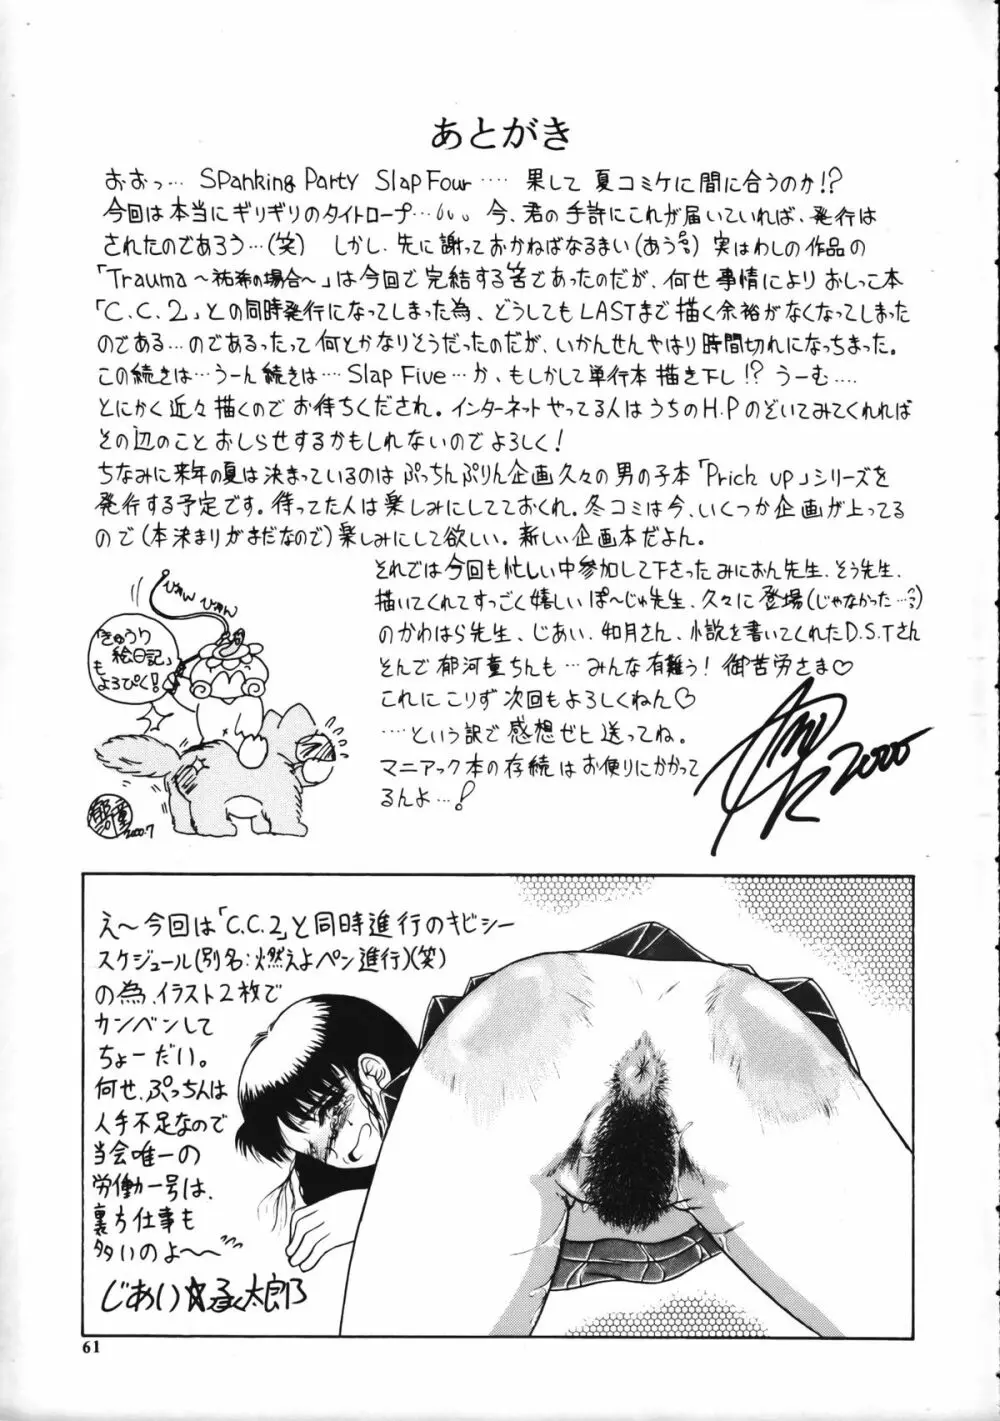 あとがき
おおっ… Spanking Party Slap Four …… 果して 夏コミケに間に合うのか!?
今回は本当にギリギリのタイトロープ… 今、君の手許にこれが届いていれば、発行は
されたのであろう…(笑) しかし、先に謝っておかねばなるまい(あうぅ) 実はわしの作品の
「Trauma〜祐希の場合〜」は今回で完結する筈であったのだが、何せ事情によりおしっこ本
「C.C.2」との同時発行になってしまった為、どうしてもLASTまで描く余裕がなくなってしまった
のである…のであるったって何とかなりそうだったのだが、いかんせんやはり時間切れになっちまった。
この続きは…うーん続きは… Slap Five …か、もしかして単行本描き下し!? うーむ….
とにかく近々描くのでお待ちくだされ。インターネットやってる人はうちのH.Pのぞいてみてくれれば
その辺のことおしらせするかもしれないのでよろしく!
ちなみに来年の夏は決まっているのは ぷっちんぷりん企画久々の男の子本「Prich up」シリーズを
発行する予定です。待ってた人は楽しみにしてておくれ。冬コミは今、いくつか企画が上ってる
ので(本決まりがまだなので)楽しみにして欲しい。新しい企画本だよん。
それでは今回も忙しい中参加して下さったみにおん先生、そう先生、
描いてくれてすっごく嬉しいぽ〜じゅ先生、久々に登場(じゃなかった…)
のかわはら先生、じあい、如月さん、小説を書いてくれたD.S.Tさん
そんで郁河童ちんも…みんな有難う! 御苦労さま♡
これにこりず次回もよろしくねん♡
….という訳で感想ゼヒ送ってね。
マニアック本の存続はお便りにかかって
るんよ…!
2000
ぴゅん ぴゅん
「きゅうり
絵日記」
も
よろぴく!
郁河童
2000.7
え〜今回は「C.C.2」と同時進行のキビシー
スケジュール(別名:燃えよペン進行)(笑)
の為、イラスト2枚で
カンベンして
ちょーだい。
何せ、ぷっちんは
人手不足なので
当会唯一の
労働一号は、
裏方仕事も
多いのよ〜〜
じあい☆承太郎
61